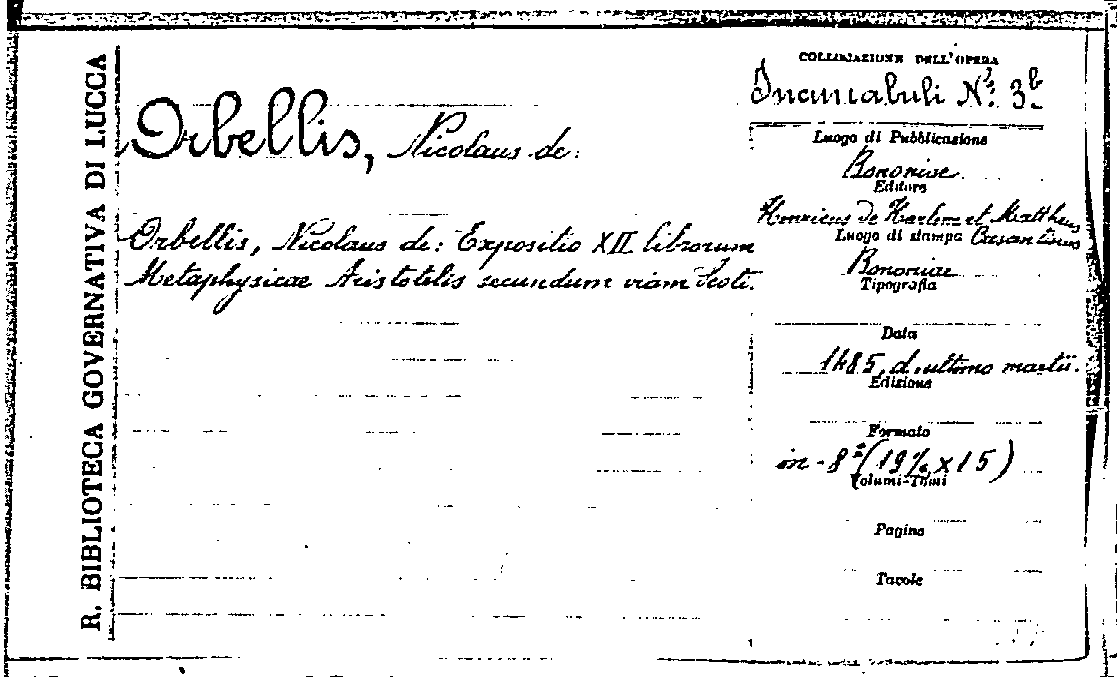 R. BIBLIOTECA GOVERNATIVA DI LUCCA
Orbellis, Nicolaus de:
Orbellis, Nicolaus de: Expositio XII librorum
Metaphysicae Aristotelis secundum viam Scoti.
COLLOCAZIONE DELL'OPERA
Incunabuli N.º 3b
Luogo di Pubblicazione
Bononiae
Editore
Henricus de Harlem et Mattheus
Crescentinus
Luogo di stampa
Bononiae
Tipografia
Data
1485, d. ultimo martii.
Edizione
Formato
in-8º (19½ x 15)
Volumi-Tomi
Pagine
Tavole